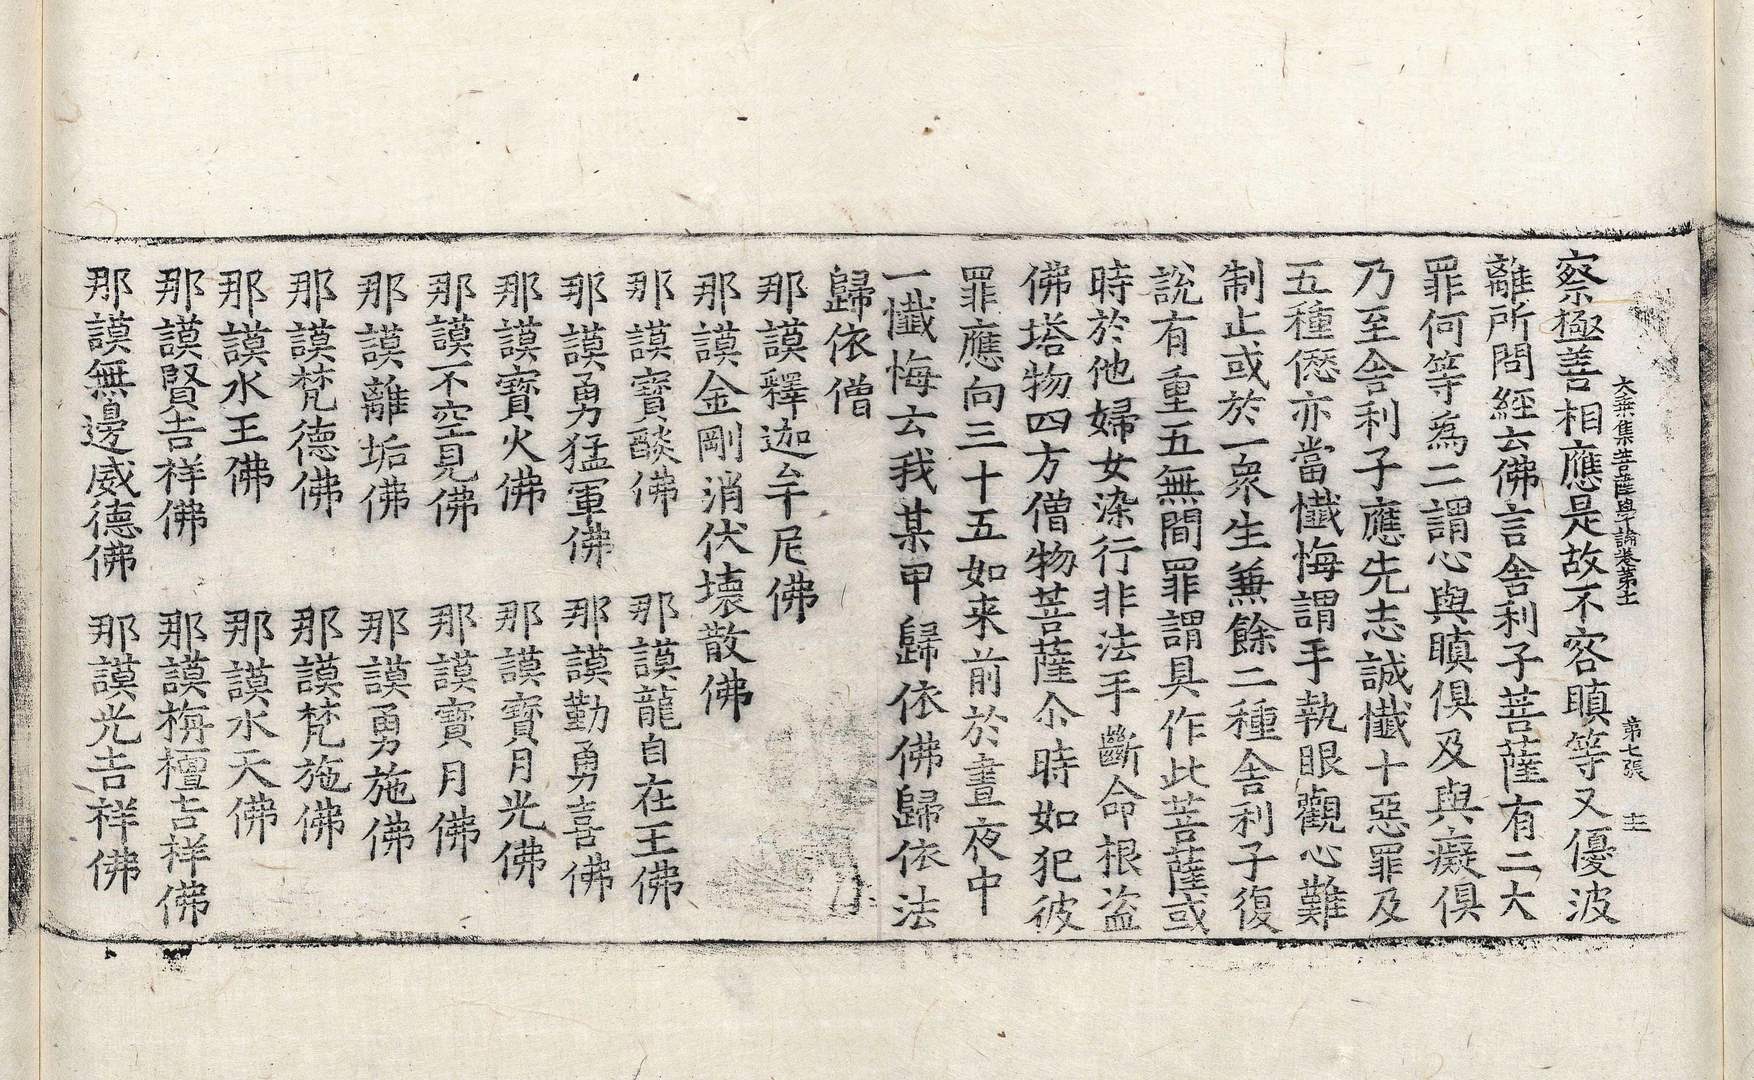 大乘集菩薩學論卷第十一 第七張 十二
察極善相應是故不容瞋等又優波
離所問經云佛言舍利子菩薩有二大
罪何等為二謂心與瞋俱及與癡俱
乃至舍利子應先志誠懺十惡罪及
五種僁亦當懺悔謂手執眼觀心難
制止或於一衆生兼餘二種舍利子復
說有重五無間罪謂具作此菩薩或
時於他婦女染行非法手斷命根盜
佛塔物四方僧物菩薩尒時如犯彼
罪應向三十五如来前於晝夜中
一懺悔云我某甲歸依佛歸依法
歸依僧
那謨釋迦牟尼佛
那謨金剛消伏壞散佛
那謨寶𦦨佛 那謨龍自在王佛
那謨勇猛軍佛 那謨勤勇喜佛
那謨寶火佛 那謨寶月光佛
那謨不空見佛 那謨寶月佛
那謨離垢佛 那謨勇施佛
那謨梵德佛 那謨梵施佛
那謨水王佛 那謨水天佛
那謨賢吉祥佛 那謨栴檀吉祥佛
那謨無邊威德佛 那謨光吉祥佛